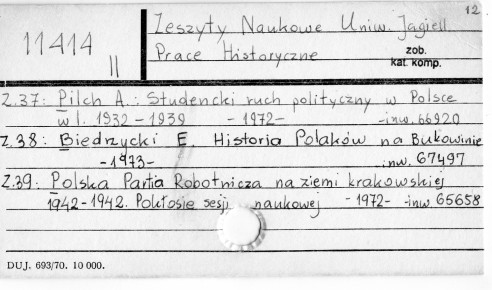 12
11414
II
Zeszyty Naukowe Uniw. Jagiell.
Prace Historyczne
zob.
kat. komp.
Z.37: Pilch A.: Studencki ruch polityczny w Polsce
w l. 1932-1939 -1972- -inw. 66920
Z.38: Biedrzycki E. Historia Polaków na Bukowinie
-1973- inw. 67497
Z.39: Polska Partia Robotnicza na ziemi krakowskiej
1942-1942. Pokłosie sesji naukowej -1972- -inw. 65658
DUJ. 693/70. 10 000.